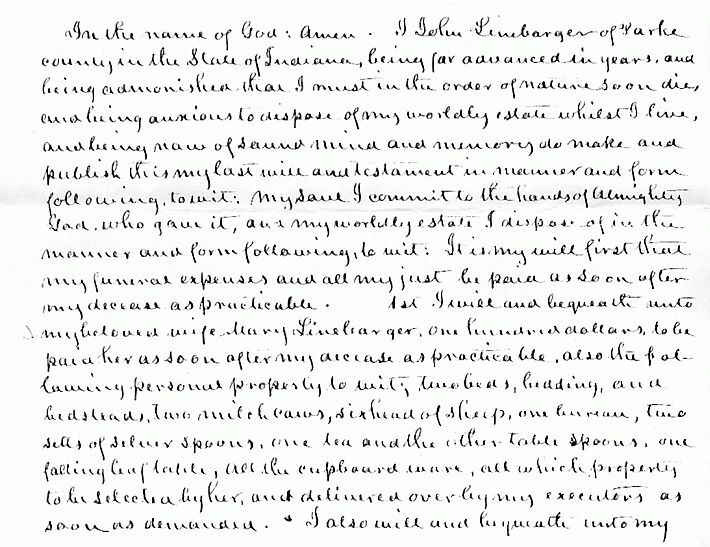 In the name of God: Amen. I John Linebarger of Parke
county in the State of Indiana, being far advanced in years, and
being admonished that I must in the order of nature soon die,
and being anxious to dispose of my worldly estate whilst I live,
and being now of sound mind and memory do make and
publish this my last will and testament in manner and form
following, to wit: My soul I commit to the hands of Almighty
God, who gave it, and my worldly estate I dispose of in the
manner and form following, to wit: It is my will first that
my funeral expenses and all my just be paid as soon after
my decease as practicable. 1st I will and bequeath unto
my beloved wife Mary Linebarger, one hundred dollars, to be
paid her as soon after my decease as practicable, also the fol-
lowing personal property to wit; two beds, bedding, and
bedsteads, two milch cows, six head of sheep, one bureau, two
setts of silver spoons, one tea and the other table spoons, one
falling leaf table, all the cupboard ware, all which property
to be selected by her, and delivered over by my executors as
soon as demanded. * I also will and bequeath unto my